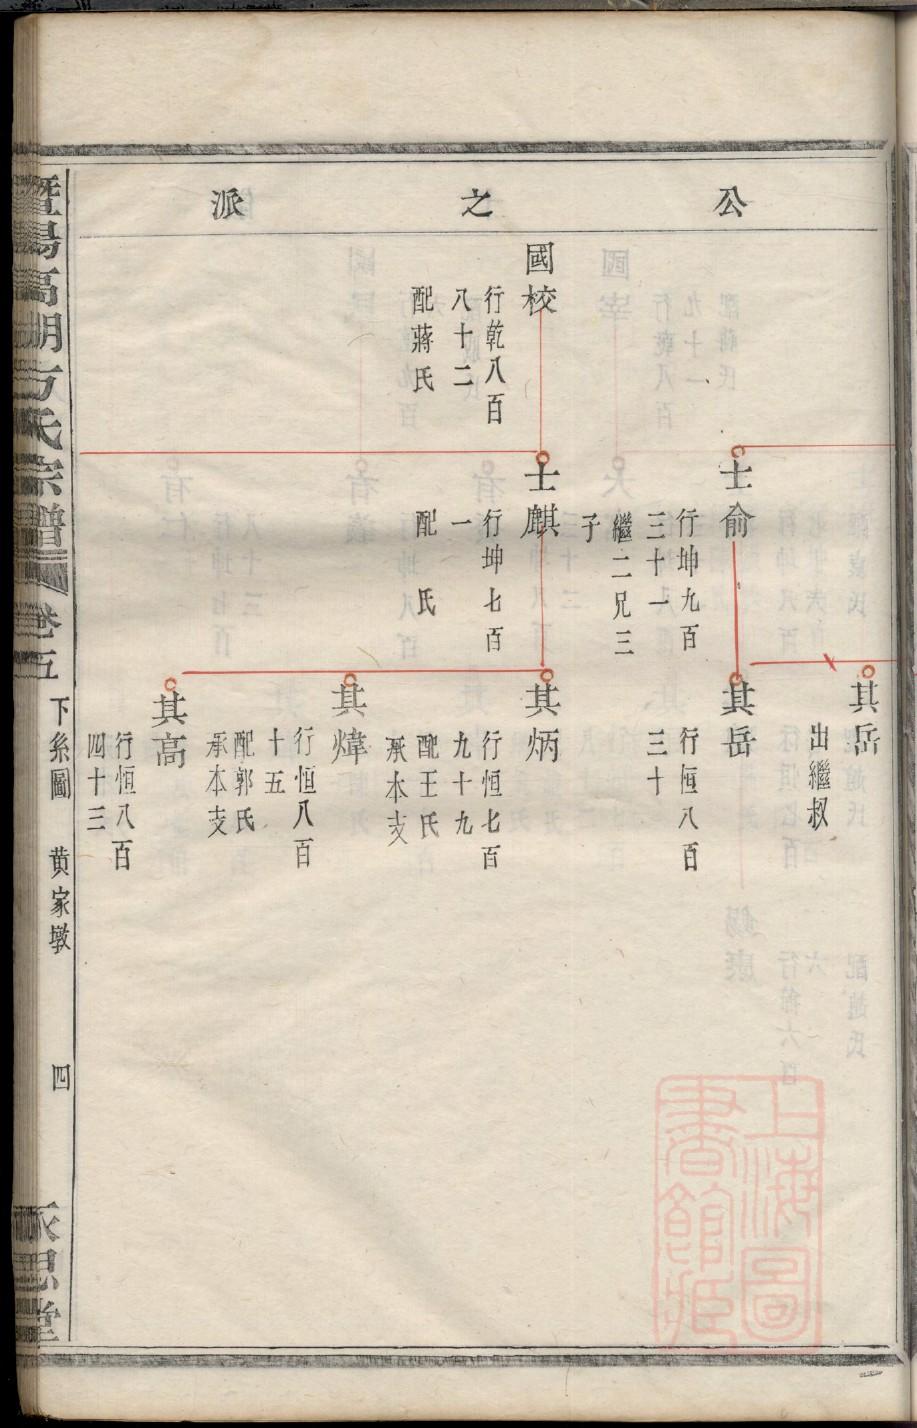 公之派
其岳
出繼叔
士俞
行坤九百
三十一
繼二兄三
子
其岳
行恒八百
三十
國校
行乾八百
八十二
配蔣氏
士麒
行坤七百
一
配　氏
其炳
行恒七百
九十九
配王氏
承本支
其煒
行恒八百
十五
配郭氏
承本支
其高
行恒八百
四十三
暨陽高湖方氏宗譜
卷五
下糸圖
黄家墩
四
永思堂
上海圖
書館